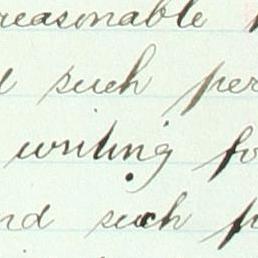 reasonable
such per
writing fo
nd such p